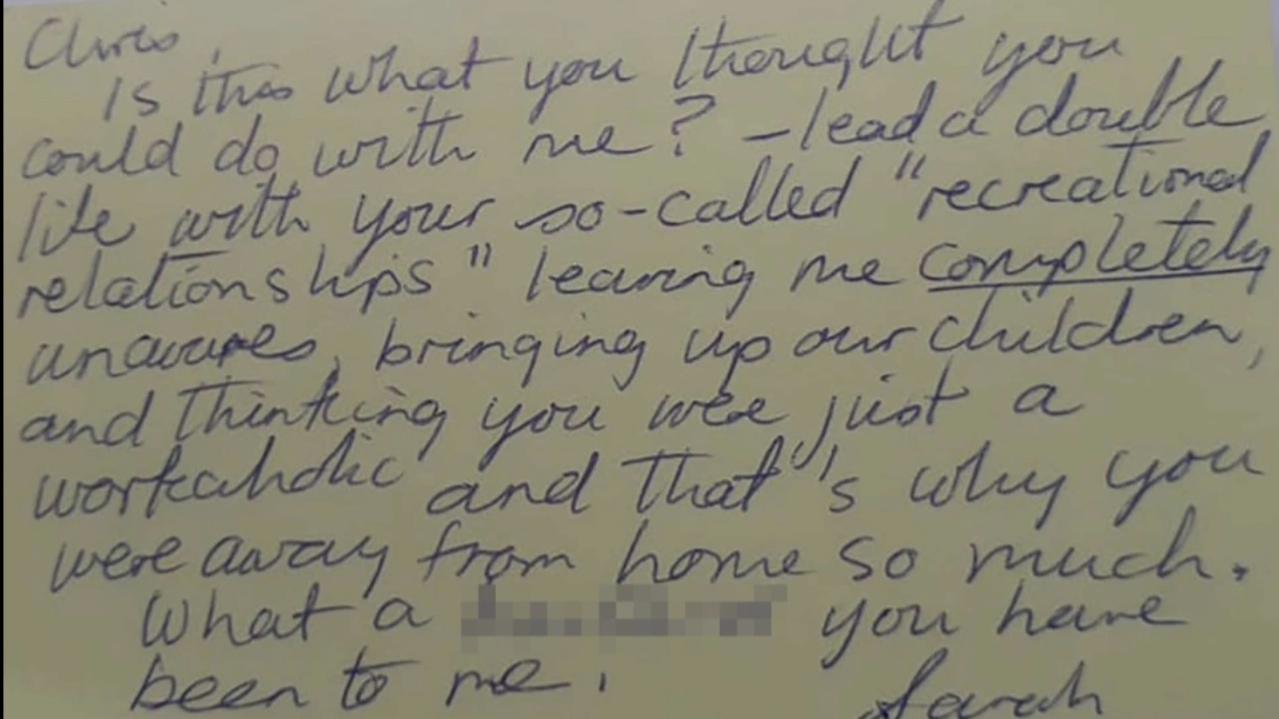 Chris,
Is this what you thought you
could do with me? – lead a double
life with your so-called "recreational
relationships" leaving me completely
unawares, bringing up our children,
and thinking you were just a
workaholic and that's why you
were away from home so much.
What a you have
been to me.
Sarah